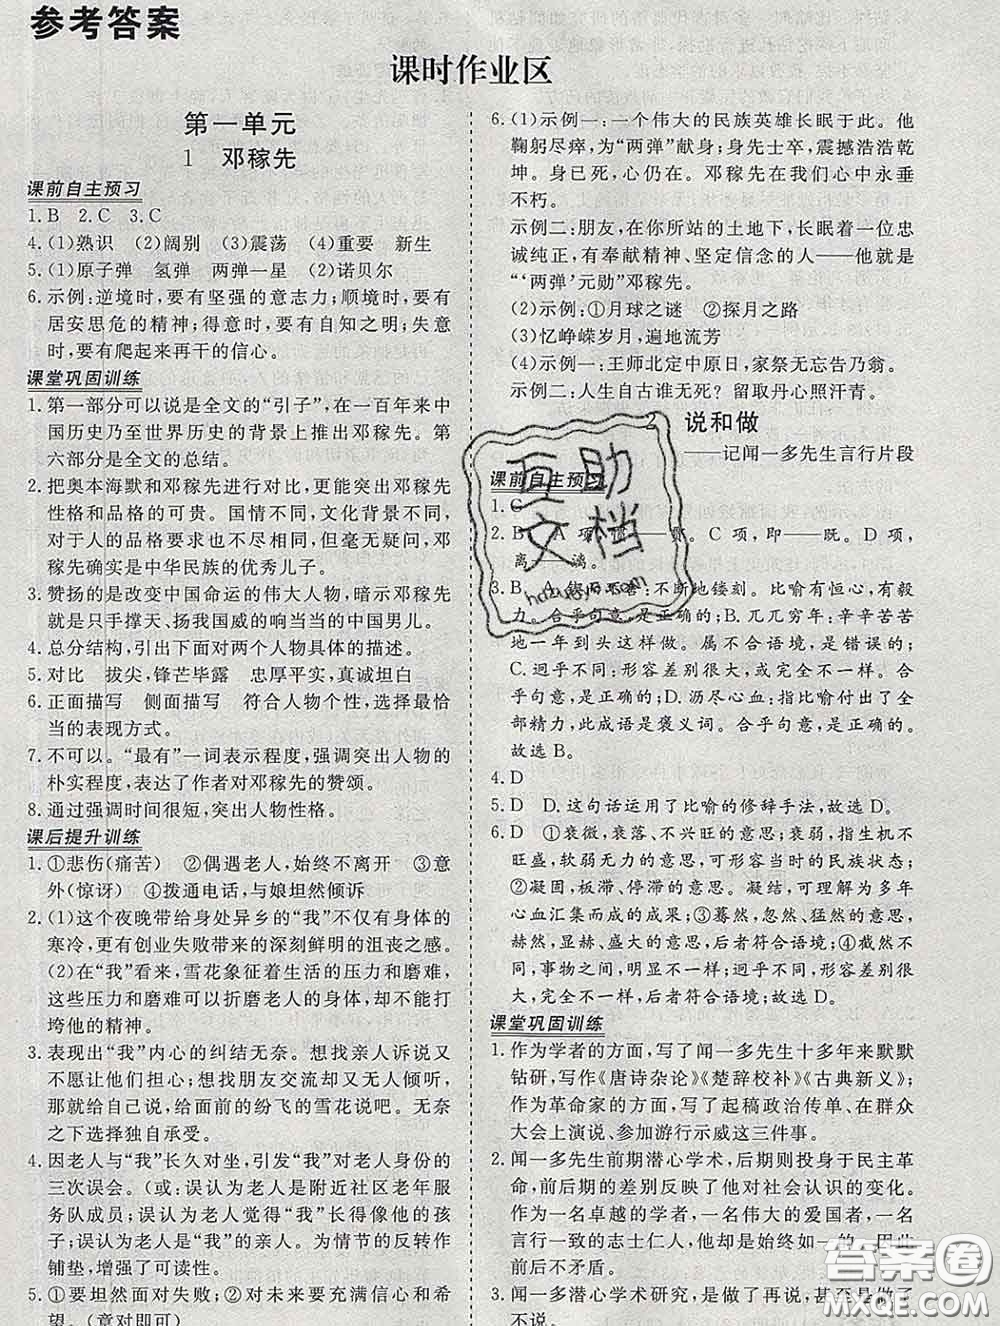 参考答案
课时作业区
第一单元
1 邓稼先
课前自主预习
1.B 2.C 3.C
4.(1)熟识 (2)阔别 (3)震荡 (4)重要 新生
5.(1)原子弹 氢弹 两弹一星 (2)诺贝尔
6.示例:逆境时,要有坚强的意志力;顺境时,要有
居安思危的精神;得意时,要有自知之明;失意
时,要有爬起来再干的信心。
课堂巩固训练
1.第一部分可以说是全文的“引子”,在一百年来中
国历史乃至世界历史的背景上推出邓稼先。第
六部分是全文的总结。
2.把奥本海默和邓稼先进行对比,更能突出邓稼先
性格和品格的可贵。国情不同,文化背景不同,
对于人的品格要求也不尽相同,但毫无疑问,邓
稼先确实是中华民族的优秀儿子。
3.赞扬的是改变中国命运的伟大人物,暗示邓稼先
就是只手撑天、扬我国威的响当当的中国男儿。
4.总分结构,引出下面对两个人物具体的描述。
5.对比 拔尖,锋芒毕露 忠厚平实,真诚坦白
6.正面描写 侧面描写 符合人物个性,选择最恰
当的表现方式。
7.不可以。“最有”一词表示程度,强调突出人物的
朴实程度,表达了作者对邓稼先的赞颂。
8.通过强调时间很短,突出人物性格。
课后提升训练
1.①悲伤(痛苦) ②偶遇老人,始终不离开 ③意
外(惊讶) ④拨通电话,与娘坦然倾诉
2.(1)这个夜晚带给身处异乡的“我”不仅有身体的
寒冷,更有创业失败带来的深刻鲜明的沮丧之感。
(2)在“我”看来,雪花象征着生活的压力和磨难,
这些压力和磨难可以折磨老人的身体,却不能打
垮他的精神。
3.表现出“我”内心的纠结无奈。想找亲人诉说又
不忍他们担忧,想找朋友交流却又无人倾听,
那就给自己说,给面前的纷飞的雪花说吧。无奈
之下选择独自承受。
4.因老人与“我”长久对坐,引发“我”对老人身份的
三次误会。(或:误认为老人是附近社区老年服
务队成员;误认为老人觉得“我”长得像他的孩
子;误认为老人是“我”的亲人。为情节的反转作
铺垫,增强了可读性。
5.①要坦然面对失败;②对未来要充满信心和希
望。(意对即可)
6.(1)示例一:一个伟大的民族英雄长眠于此。他
鞠躬尽瘁,为“两弹”献身;身先士卒,震撼浩浩乾
坤。身已死,心仍在。邓稼先在我们心中永垂
不朽。
示例二:朋友,在你所站的土地下,长眠着一位忠
诚纯正,有奉献精神、坚定信念的人——他就是
“‘两弹’元勋”邓稼先。
(2)示例:①月球之谜 ②探月之路
(3)忆峥嵘岁月,遍地流芳
(4)示例一:王师北定中原日,家祭无忘告乃翁。
示例二:人生自古谁无死? 留取丹心照汗青。
2 说和做
——记闻一多先生言行片段
课前自主预习
1.C
2.B A项,惯——贯。C项,即——既。D项,
离——漓。
3.B A.锲而不舍:不断地镂刻。比喻有恒心,有毅
力。合乎句意,是正确的;B.兀兀穷年:辛辛苦苦
地一年到头这样做。属不合语境,是错误的;
C.迥乎不同:形容差别很大,或完全不一样。合
乎句意,是正确的;D.沥尽心血:指比喻付出了全
部精力,此成语是褒义词。合乎句意,是正确的。
故选B。
4.D
5.D D.这句话运用了比喻的修辞手法,故选D。
6.D ①衰微,衰落、不兴旺的意思;衰弱,指生机不
旺盛,软弱无力的意思,可形容当时的民族状态;
②凝固,板滞、停滞的意思。凝结,可理解为多年
心血汇集而成的成果;③蓦然,忽然、猛然的意思,
赫然,显赫、盛大的意思,后者符合语境;④截然
不同,事物之间,明显不一样;迥乎不同,差别很大,
完全不一样,后者符合语境;故选D。
课堂巩固训练
1.作为学者的方面,写了闻一多先生十多年来默默
钻研,写作《唐诗杂论》《楚辞校补》《古典新义》;
作为革命家的方面,写了起稿政治传单、在群众
大会上演说、参加游行示威这三件事。
2.闻一多先生前期潜心学术,后期则投身于民主革
命,前后期的差别反映了他对社会认识的变化。
作为一名卓越的学者,一名伟大的爱国者,一名
言行一致的志士仁人,他却是始终如一的,因此
前后不矛盾。
3.闻一多潜心学术研究,是做了再说,甚至是做了
不说。
互助
文档
hazuoye.com
答案圈
MXQE.COM